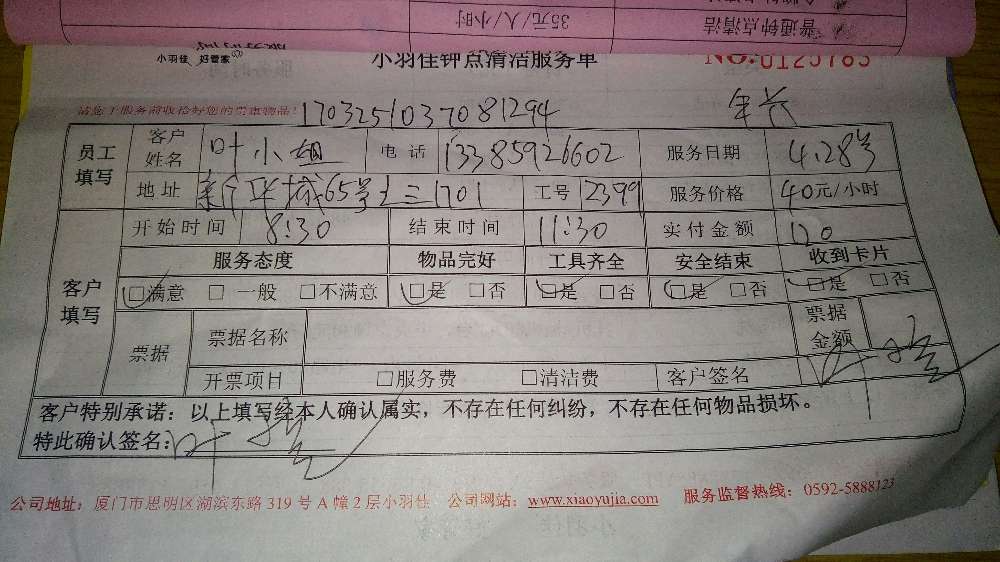 普通钟点清洁 35元/人/小时
小羽佳 好管家
小羽佳钟点清洁服务单 NO:0125183
请您于服务前收拾好您的贵重物品! 1703251037081294
员工填写 客户姓名 叶小姐 电话 13385926602 服务日期 4.28号
地址 65号 1701 工号 2399 服务价格 40元/小时
客户填写 开始时间 8:30 结束时间 11:30 实付金额 120
服务态度 物品完好 工具齐全 安全结束 收到卡片
□满意 □一般 □不满意 □是 □否 □是 □否 □是 □否 □是 □否
票据 票据名称 票据金额
开票项目 □服务费 □清洁费 客户签名
客户特别承诺：以上填写经本人确认属实，不存在任何纠纷，不存在任何物品损坏。
特此确认签名：
公司地址：厦门市思明区湖滨东路 319 号 A 幢 2 层小羽佳 公司网站：www.xiaoyujia.com 服务监督热线：0592-5888123